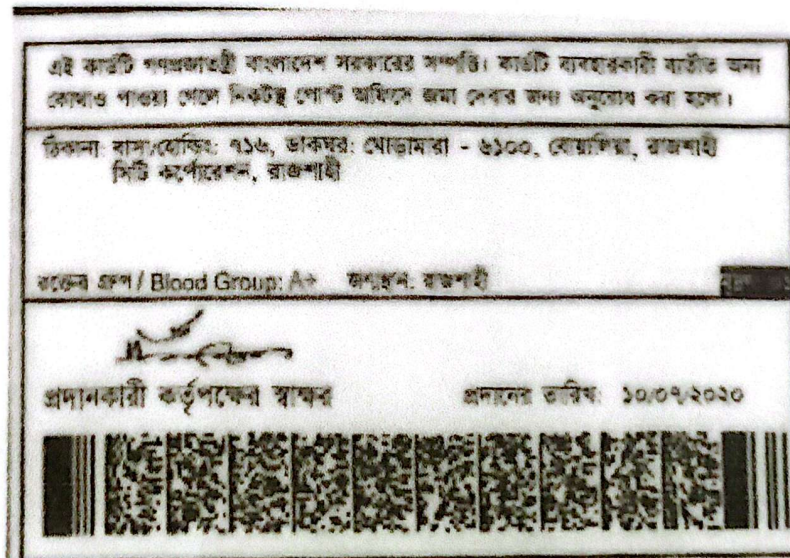 এই কার্ডটি গণপ্রজাতন্ত্রী বাংলাদেশ সরকারের সম্পত্তি। কার্ডটি ব্যবহারকারী ব্যতীত অন্য
কোথাও পাওয়া গেলে নিকটস্থ পোস্ট অফিসে জমা দেবার জন্য অনুরোধ করা হলো।
ঠিকানা: বাসা/হোল্ডিং: ৭১৬, ডাকঘর: ঘোড়ামারা - ৬১০০, বোয়ালিয়া, রাজশাহী
সিটি কর্পোরেশন, রাজশাহী
রক্তের গ্রুপ / Blood Group: A+ জন্মস্থান: রাজশাহী
প্রদানকারী কর্তৃপক্ষের স্বাক্ষর প্রদানের তারিখ: ১০/০৭/২০২০